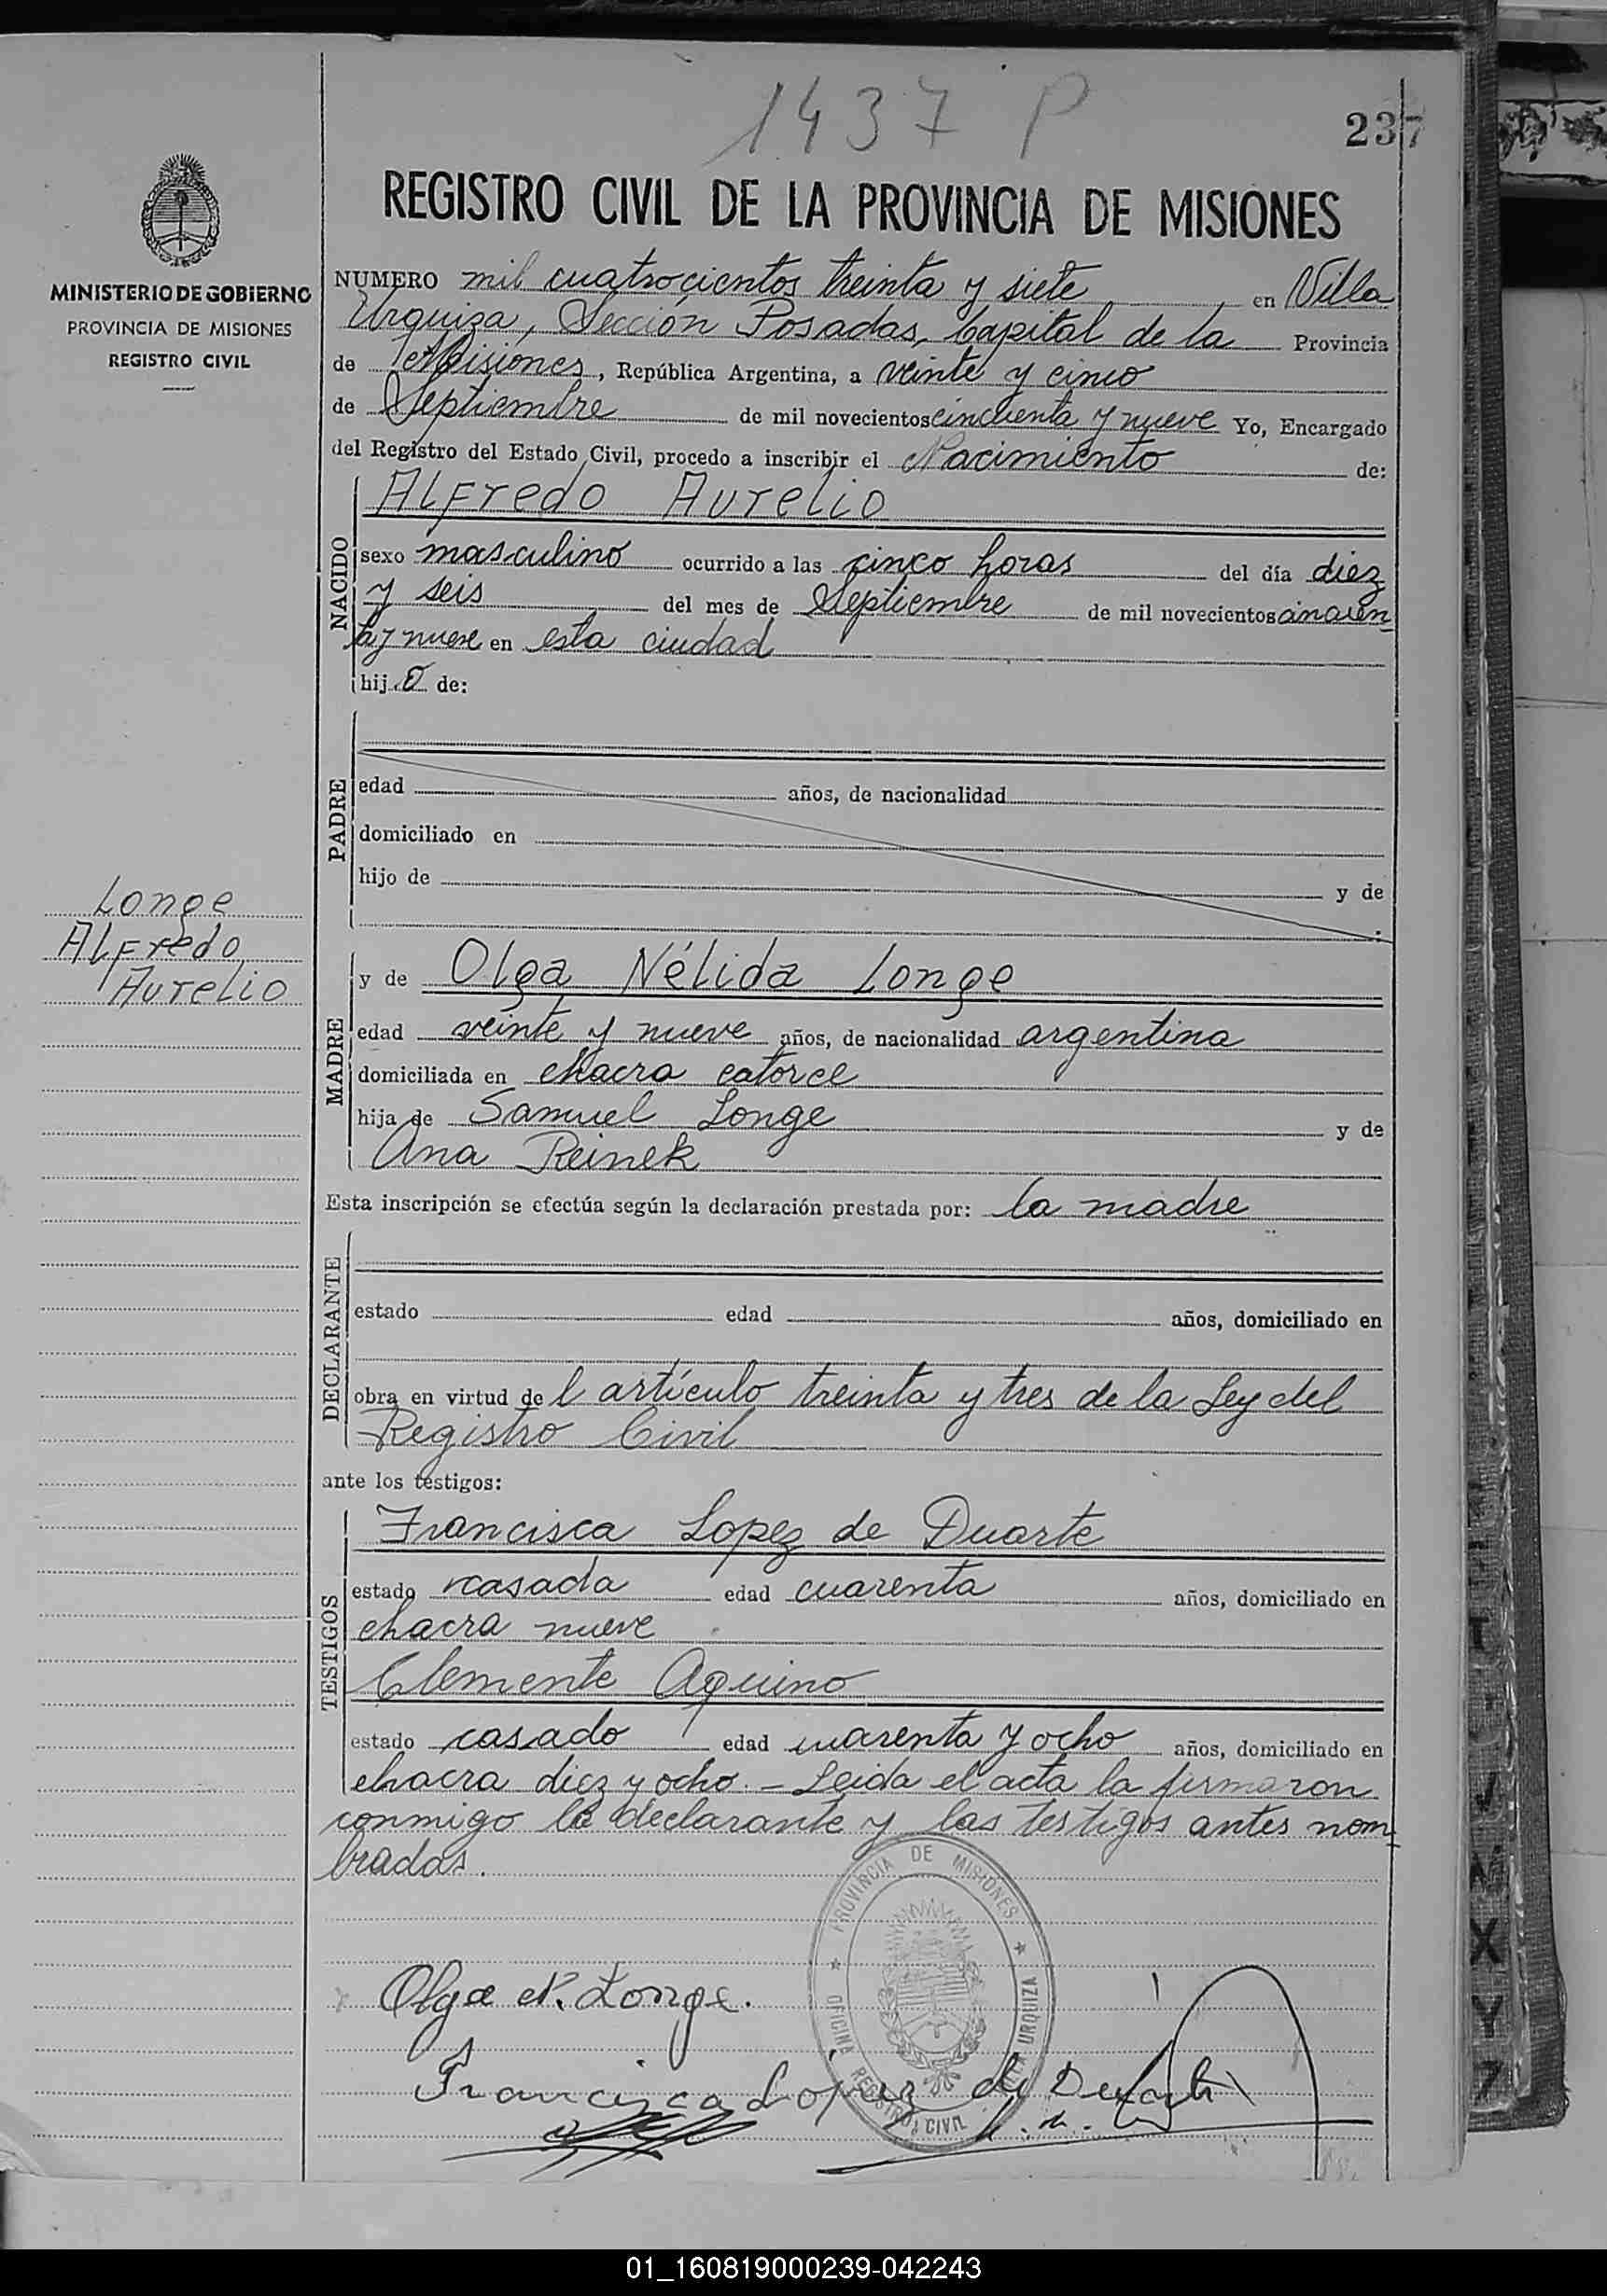 1437 P
237
REGISTRO CIVIL DE LA PROVINCIA DE MISIONES
MINISTERIO DE GOBIERNO
PROVINCIA DE MISIONES
REGISTRO CIVIL
NUMERO mil cuatrocientos treinta y siete en Villa
Urquiza, Sección Posadas, Capital de la Provincia
de Misiones, República Argentina, a veinte y cinco
de Septiembre de mil novecientos cincuenta y nueve Yo, Encargado
del Registro del Estado Civil, procedo a inscribir el Nacimiento de:
NACIDO
Alfredo Aurelio
sexo masculino ocurrido a las cinco horas del día diez
y seis del mes de Septiembre de mil novecientos cincuen
ta y nueve en esta ciudad
hijo de:
PADRE
edad años, de nacionalidad
domiciliado en
hijo de y de
Longe
Alfredo
Aurelio
MADRE
y de Olga Nélida Longe
edad veinte y nueve años, de nacionalidad argentina
domiciliada en chacra catorce
hija de Samuel Longe y de
Ana Reinek
Esta inscripción se efectúa según la declaración prestada por: la madre
DECLARANTE
estado edad años, domiciliado en
obra en virtud de l artículo treinta y tres de la Ley del
Registro Civil
ante los testigos:
TESTIGOS
Francisca Lopez de Duarte
estado casada edad cuarenta años, domiciliado en
chacra nueve
Clemente Aquino
estado casado edad cuarenta y ocho años, domiciliado en
chacra diez y ocho. - Leida el acta la firmaron
conmigo la declarante y los testigos antes nom
brados.
PROVINCIA DE MISIONES
OFICINA REGISTRO CIVIL VILLA URQUIZA
Olga N. Longe.
Francisca Lopez de Duarte
01_160819000239-042243